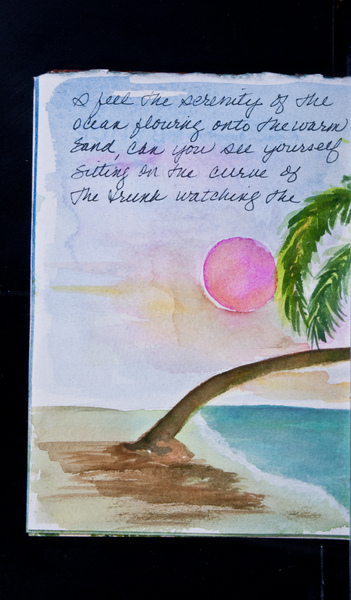 I feel the serenity of the
ocean flowing onto the warm
sand, can you see yourself
sitting on the curve of
the trunk watching the